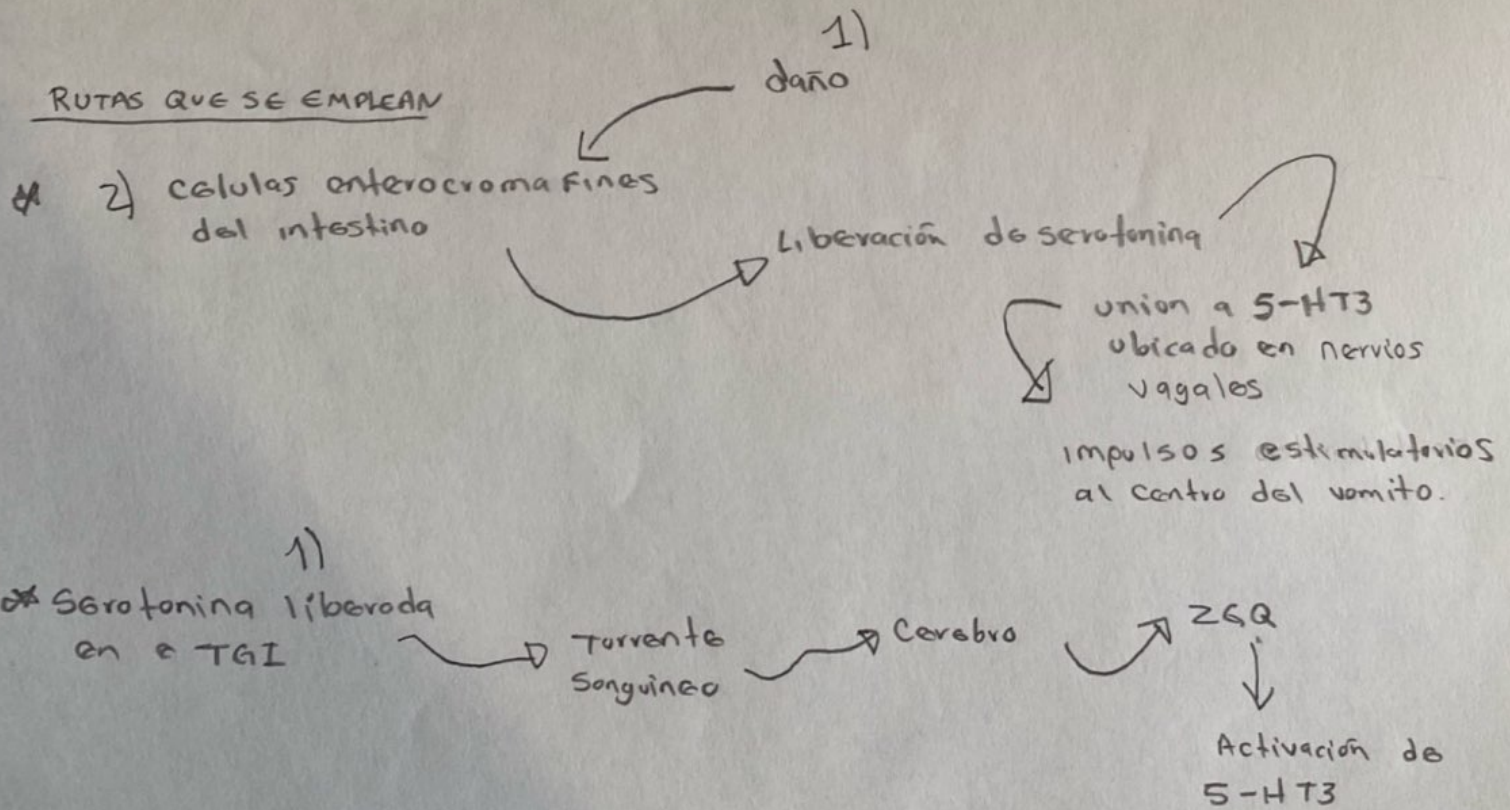 1)
daño
RUTAS QUE SE EMPLEAN
* 2) células enterocromafines
del intestino
Liberación de serotonina
union a 5-HT3
ubicado en nervios
vagales
impulsos estimulatorios
al centro del vomito.
1)
* Serotonina liberada
en e TGI
Torrente
Sanguineo
Cerebro
ZGQ
Activación de
5-HT3